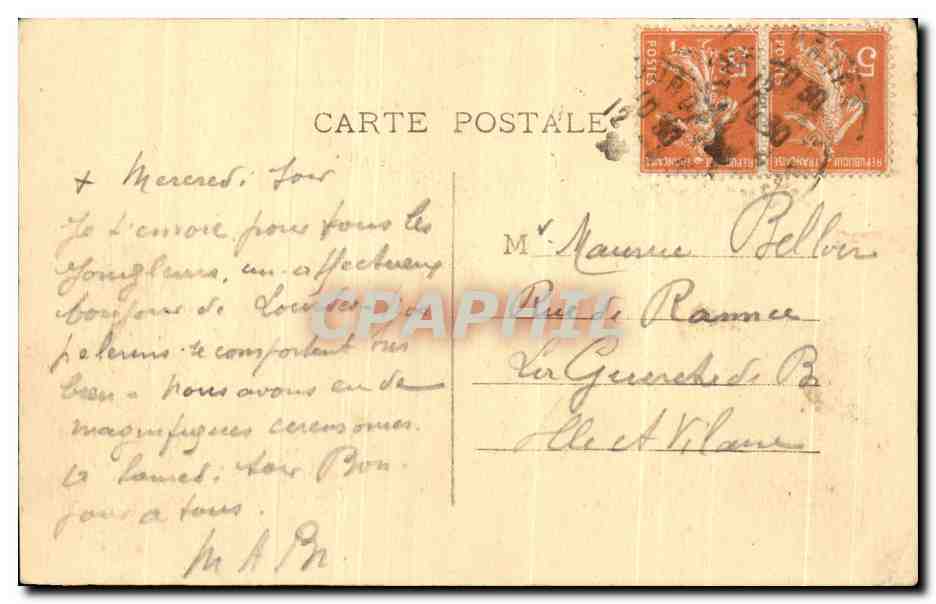 CARTE POSTALE
+ Mercredi soir
Je t'envoie pour tous les
Jongleurs, un affectueux
bonjour de Lourdes. Nos
pelerins se comportent tres
bien. Nous avons eu de
magnifiques ceremonies.
a Samedi soir Bon
jour a tous.
M A Br
Mr Maurice Belloir
Rue de Rannee
La Guerche de B
Ille et Vilaine
5 POSTES REPUBLIQUE FRANCAISE
5 POSTES REPUBLIQUE FRANCAISE
CPAPHIL